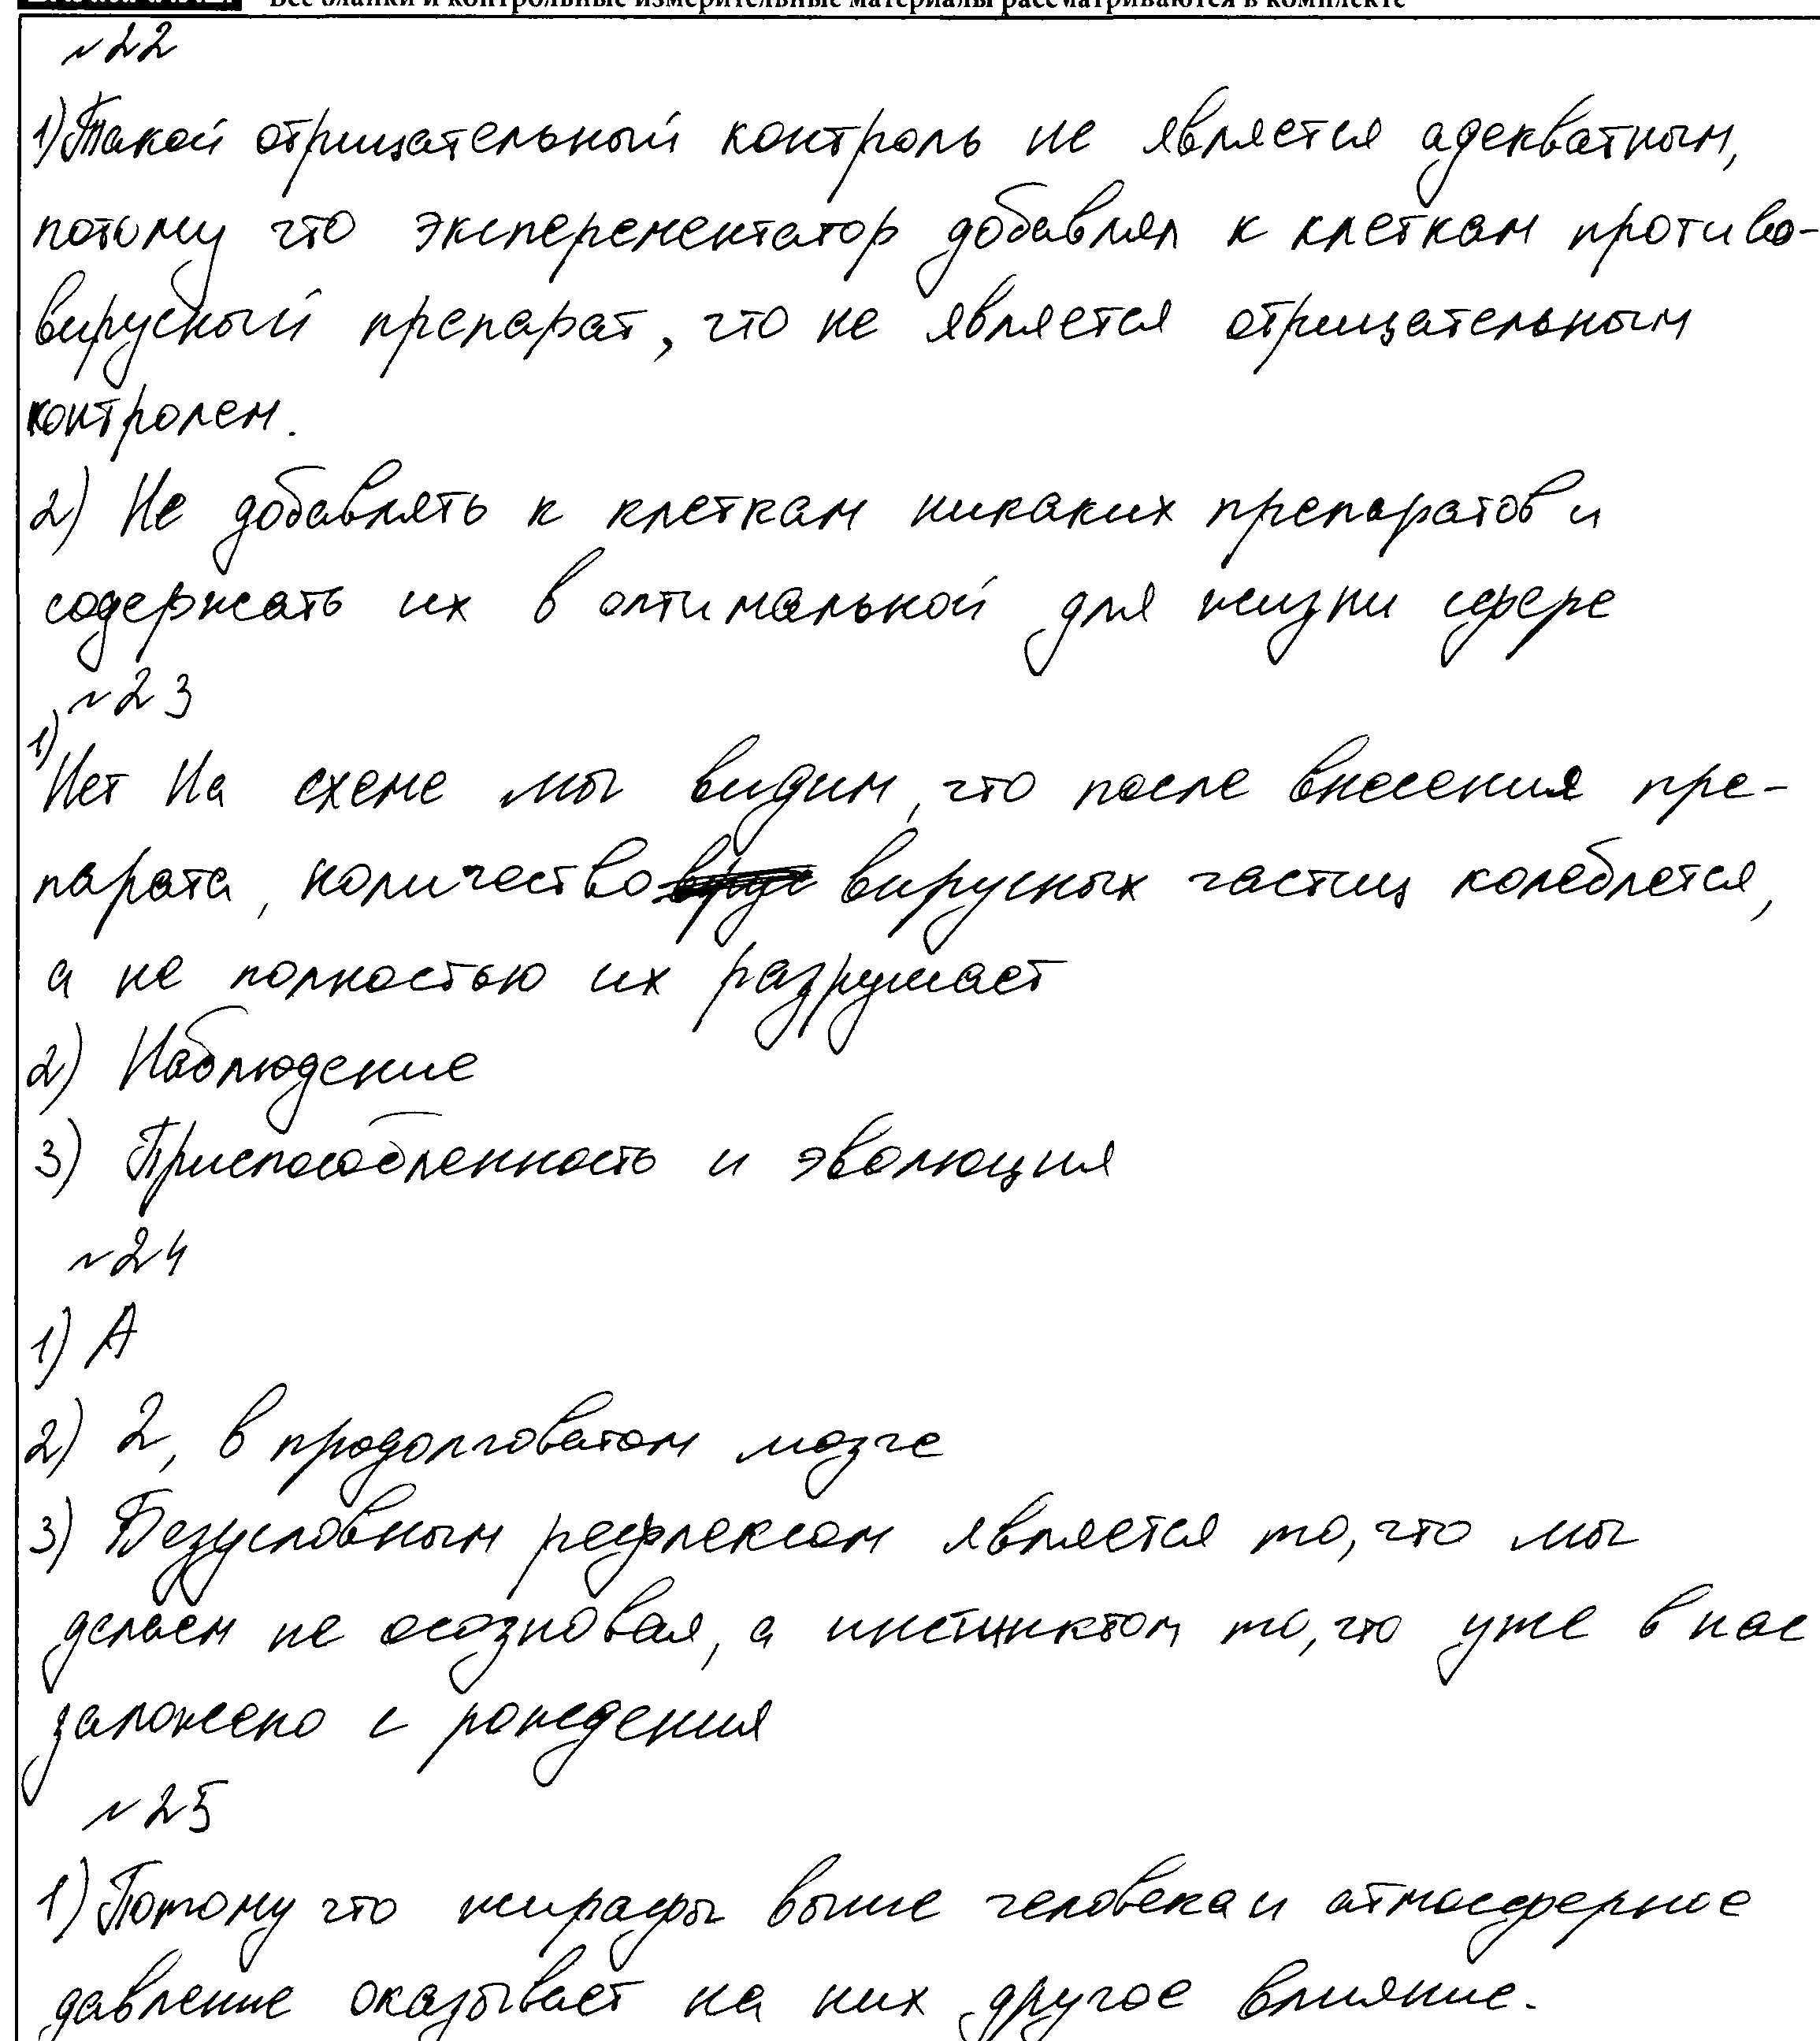 Все бланки и контрольные измерительные материалы рассматриваются в комплекте
~22
1) Такой отрицательный контроль не является адекватным,
потому что эксперементатор добавлял к клеткам противо-
вирусный препарат, что не является отрицательным
контролем.
2) Не добавлять к клеткам никаких препаратов и
содержать их в оптимальной для жизни сфере
~23
1) Нет На схеме мы видим, что после внесения пре-
парата, количество вирусных частиц колеблется,
а не полностью их разрушает
2) Наблюдение
3) Приспособленность и эволюция
~24
1) А
2) 2, в продолговатом мозге
3) Безусловным рефлексом является то, что мы
делаем не осозновая, а инстинктом то, что уже в нас
заложено с рождения
~25
1) Потому что жирафы выше человека и атмосферное
давление оказывает на них другое влияние.